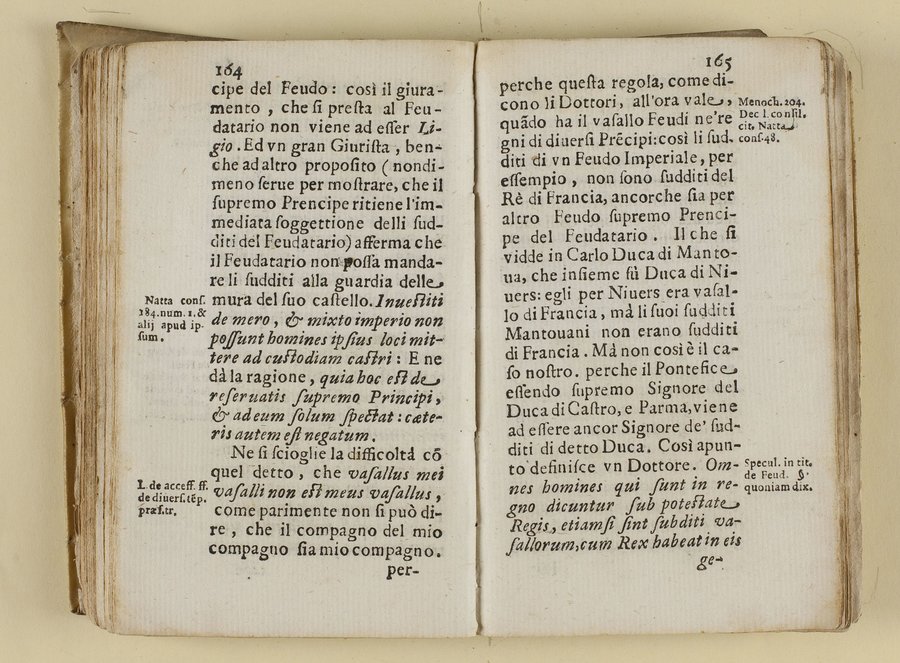 164
cipe del Feudo: così il giura-
mento, che ſi preſta al Feu-
datario non viene ad eſſer Li-
gio. Ed vn gran Giuriſta, ben-
che ad altro propoſito (nondi-
meno ſerue per moſtrare, che il
ſupremo Prencipe ritiene l'im-
mediata ſoggettione delli ſud-
diti del Feudatario) afferma che
il Feudatario non poſſa manda-
re li ſudditi alla guardia delle
mura del ſuo caſtello. Inueſtiti
de mero, & mixto imperio non
poſſunt homines ipſius loci mit-
tere ad cuſtodiam caſtri: E ne
dà la ragione, quia hoc eſt de
reſeruatis ſupremo Principi,
& ad eum ſolum ſpectat: cæte-
ris autem eſt negatum.
Ne ſi ſcioglie la difficoltà cō
quel detto, che vaſallus mei
vaſalli non eſt meus vaſallus,
come parimente non ſi può di-
re, che il compagno del mio
compagno ſia mio compagno.
per-
Natta conſ.
184. num. 1. &
alij apud ip-
ſum.
I. de acceſſ. ff.
de diuerſ. tēp.
præſcr.
165
perche queſta regola, come di-
cono li Dottori, all'ora vale,
quādo ha il vaſallo Feudi ne're
gni di diuerſi Prēcipi: così li ſud-
diti di vn Feudo Imperiale, per
eſſempio, non ſono ſudditi del
Rè di Francia, ancorche ſia per
altro Feudo ſupremo Prenci-
pe del Feudatario. Il che ſi
vidde in Carlo Duca di Manto-
ua, che inſieme fù Duca di Ni-
uers: egli per Niuers era vaſal-
lo di Francia, mà li ſuoi ſudditi
Mantouani non erano ſudditi
di Francia. Mà non così è il ca-
ſo noſtro. perche il Pontefice
eſſendo ſupremo Signore del
Duca di Caſtro, e Parma, viene
ad eſſere ancor Signore de' ſud-
diti di detto Duca. Così apun-
to definiſce vn Dottore. Om-
nes homines qui ſunt in re-
gno dicuntur ſub poteſtate
Regis, etiamſi ſint ſubditi va-
ſallorum, cum Rex habeat in eis
ge-
Menoch. 204.
Dec I. conſil.
cit. Natta
conſ. 48.
Specul. in tit.
de Feud. §.
quoniam dix.